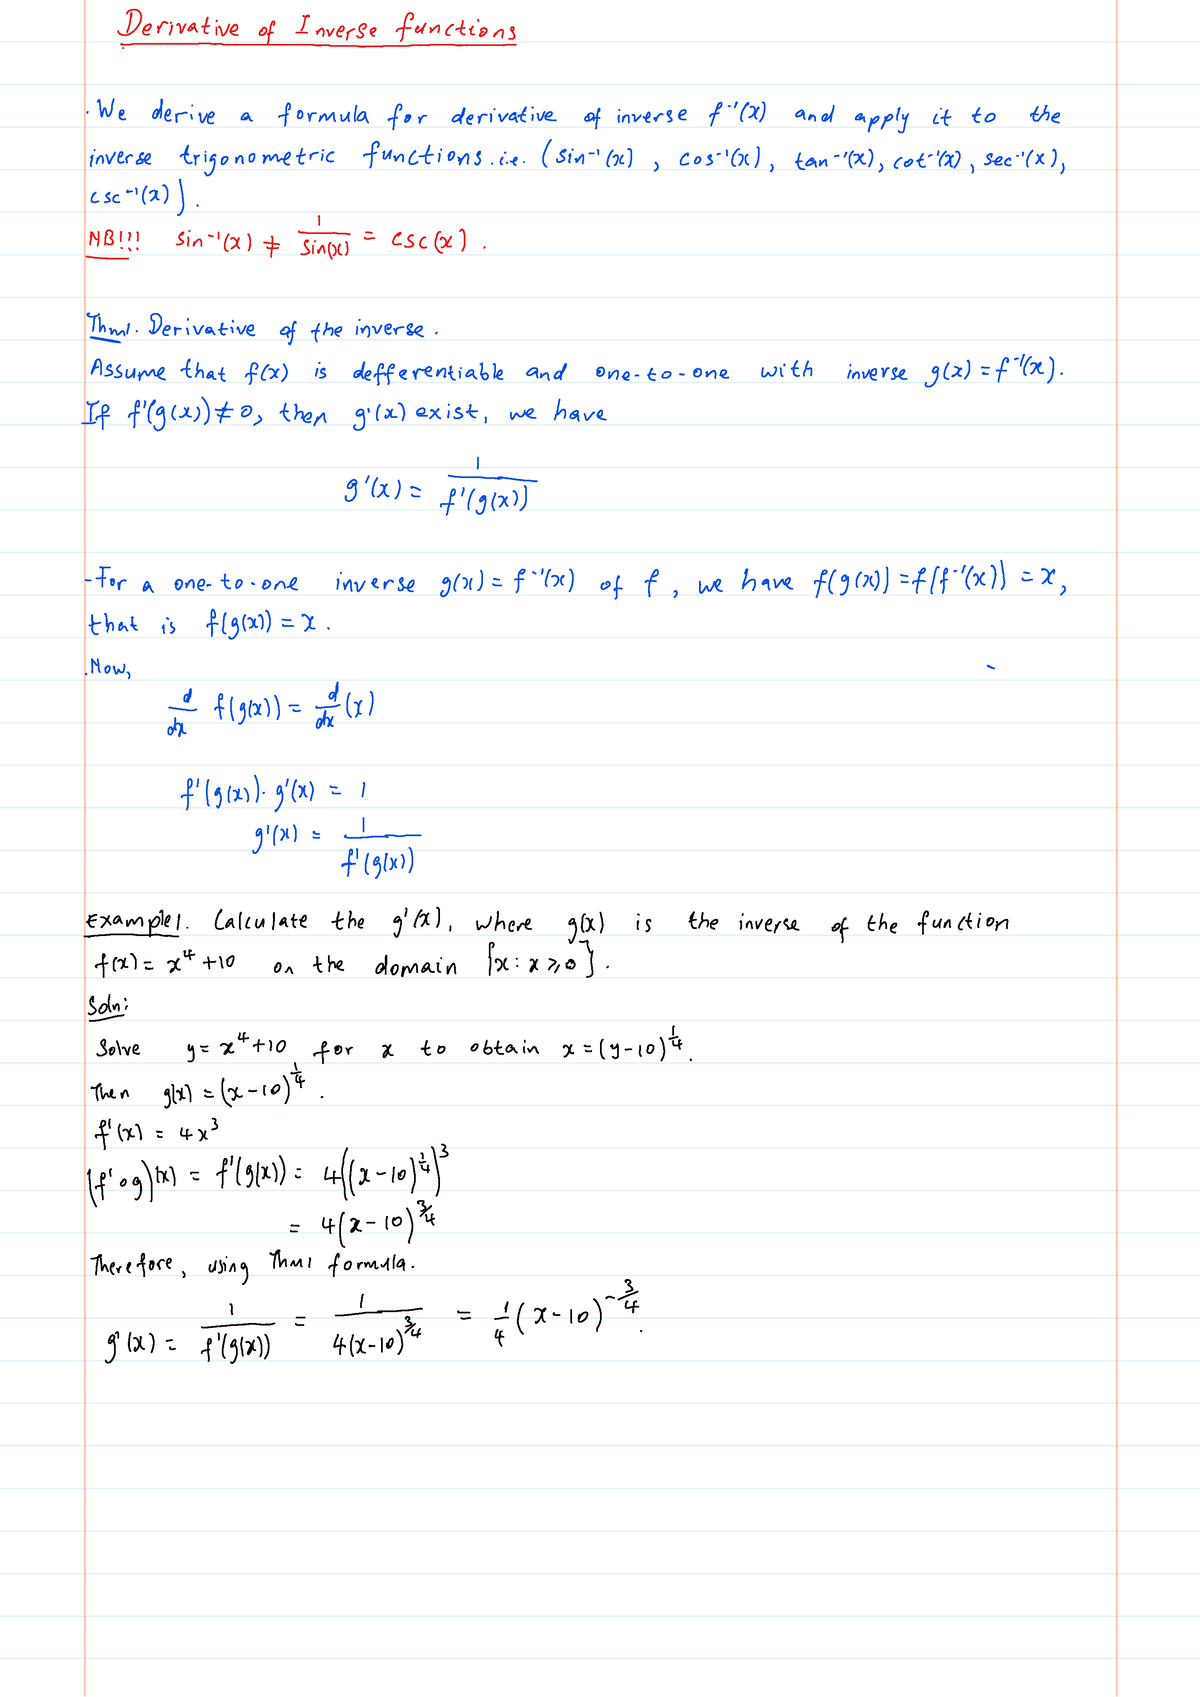 Derivative of Inverse functions
. We derive a formula for derivative of inverse f⁻¹(x) and apply it to the
inverse trigonometric functions. i.e. (sin⁻¹(x), cos⁻¹(x), tan⁻¹(x), cot⁻¹(x), sec⁻¹(x),
csc⁻¹(x)).
NB!!! sin⁻¹(x) ≠ 1/sin(x) = csc(x).
Thm1. Derivative of the inverse.
Assume that f(x) is defferentiable and one-to-one with inverse g(x) = f⁻¹(x).
If f'(g(x)) ≠ 0, then g'(x) exist, we have
g'(x) = 1/f'(g(x))
- For a one-to-one inverse g(x) = f⁻¹(x) of f, we have f(g(x)) = f(f⁻¹(x)) = x,
that is f(g(x)) = x.
. Now,
d/dx f(g(x)) = d/dx (x)
f'(g(x)). g'(x) = 1
g'(x) = 1/f'(g(x))
Example1. Calculate the g'(x), where g(x) is the inverse of the function
f(x) = x⁴ + 10 on the domain {x : x ⩾ 0}.
Soln:
Solve y = x⁴ + 10 for x to obtain x = (y - 10)^(1/4).
Then g(x) = (x - 10)^(1/4).
f'(x) = 4x³
(f' o g)(x) = f'(g(x)) = 4((x - 10)^(1/4))³
= 4(x - 10)^(3/4)
Therefore, using Thm1 formula.
g'(x) = 1/f'(g(x)) = 1/4(x-10)^(3/4) = 1/4 (x - 10)^(-3/4).